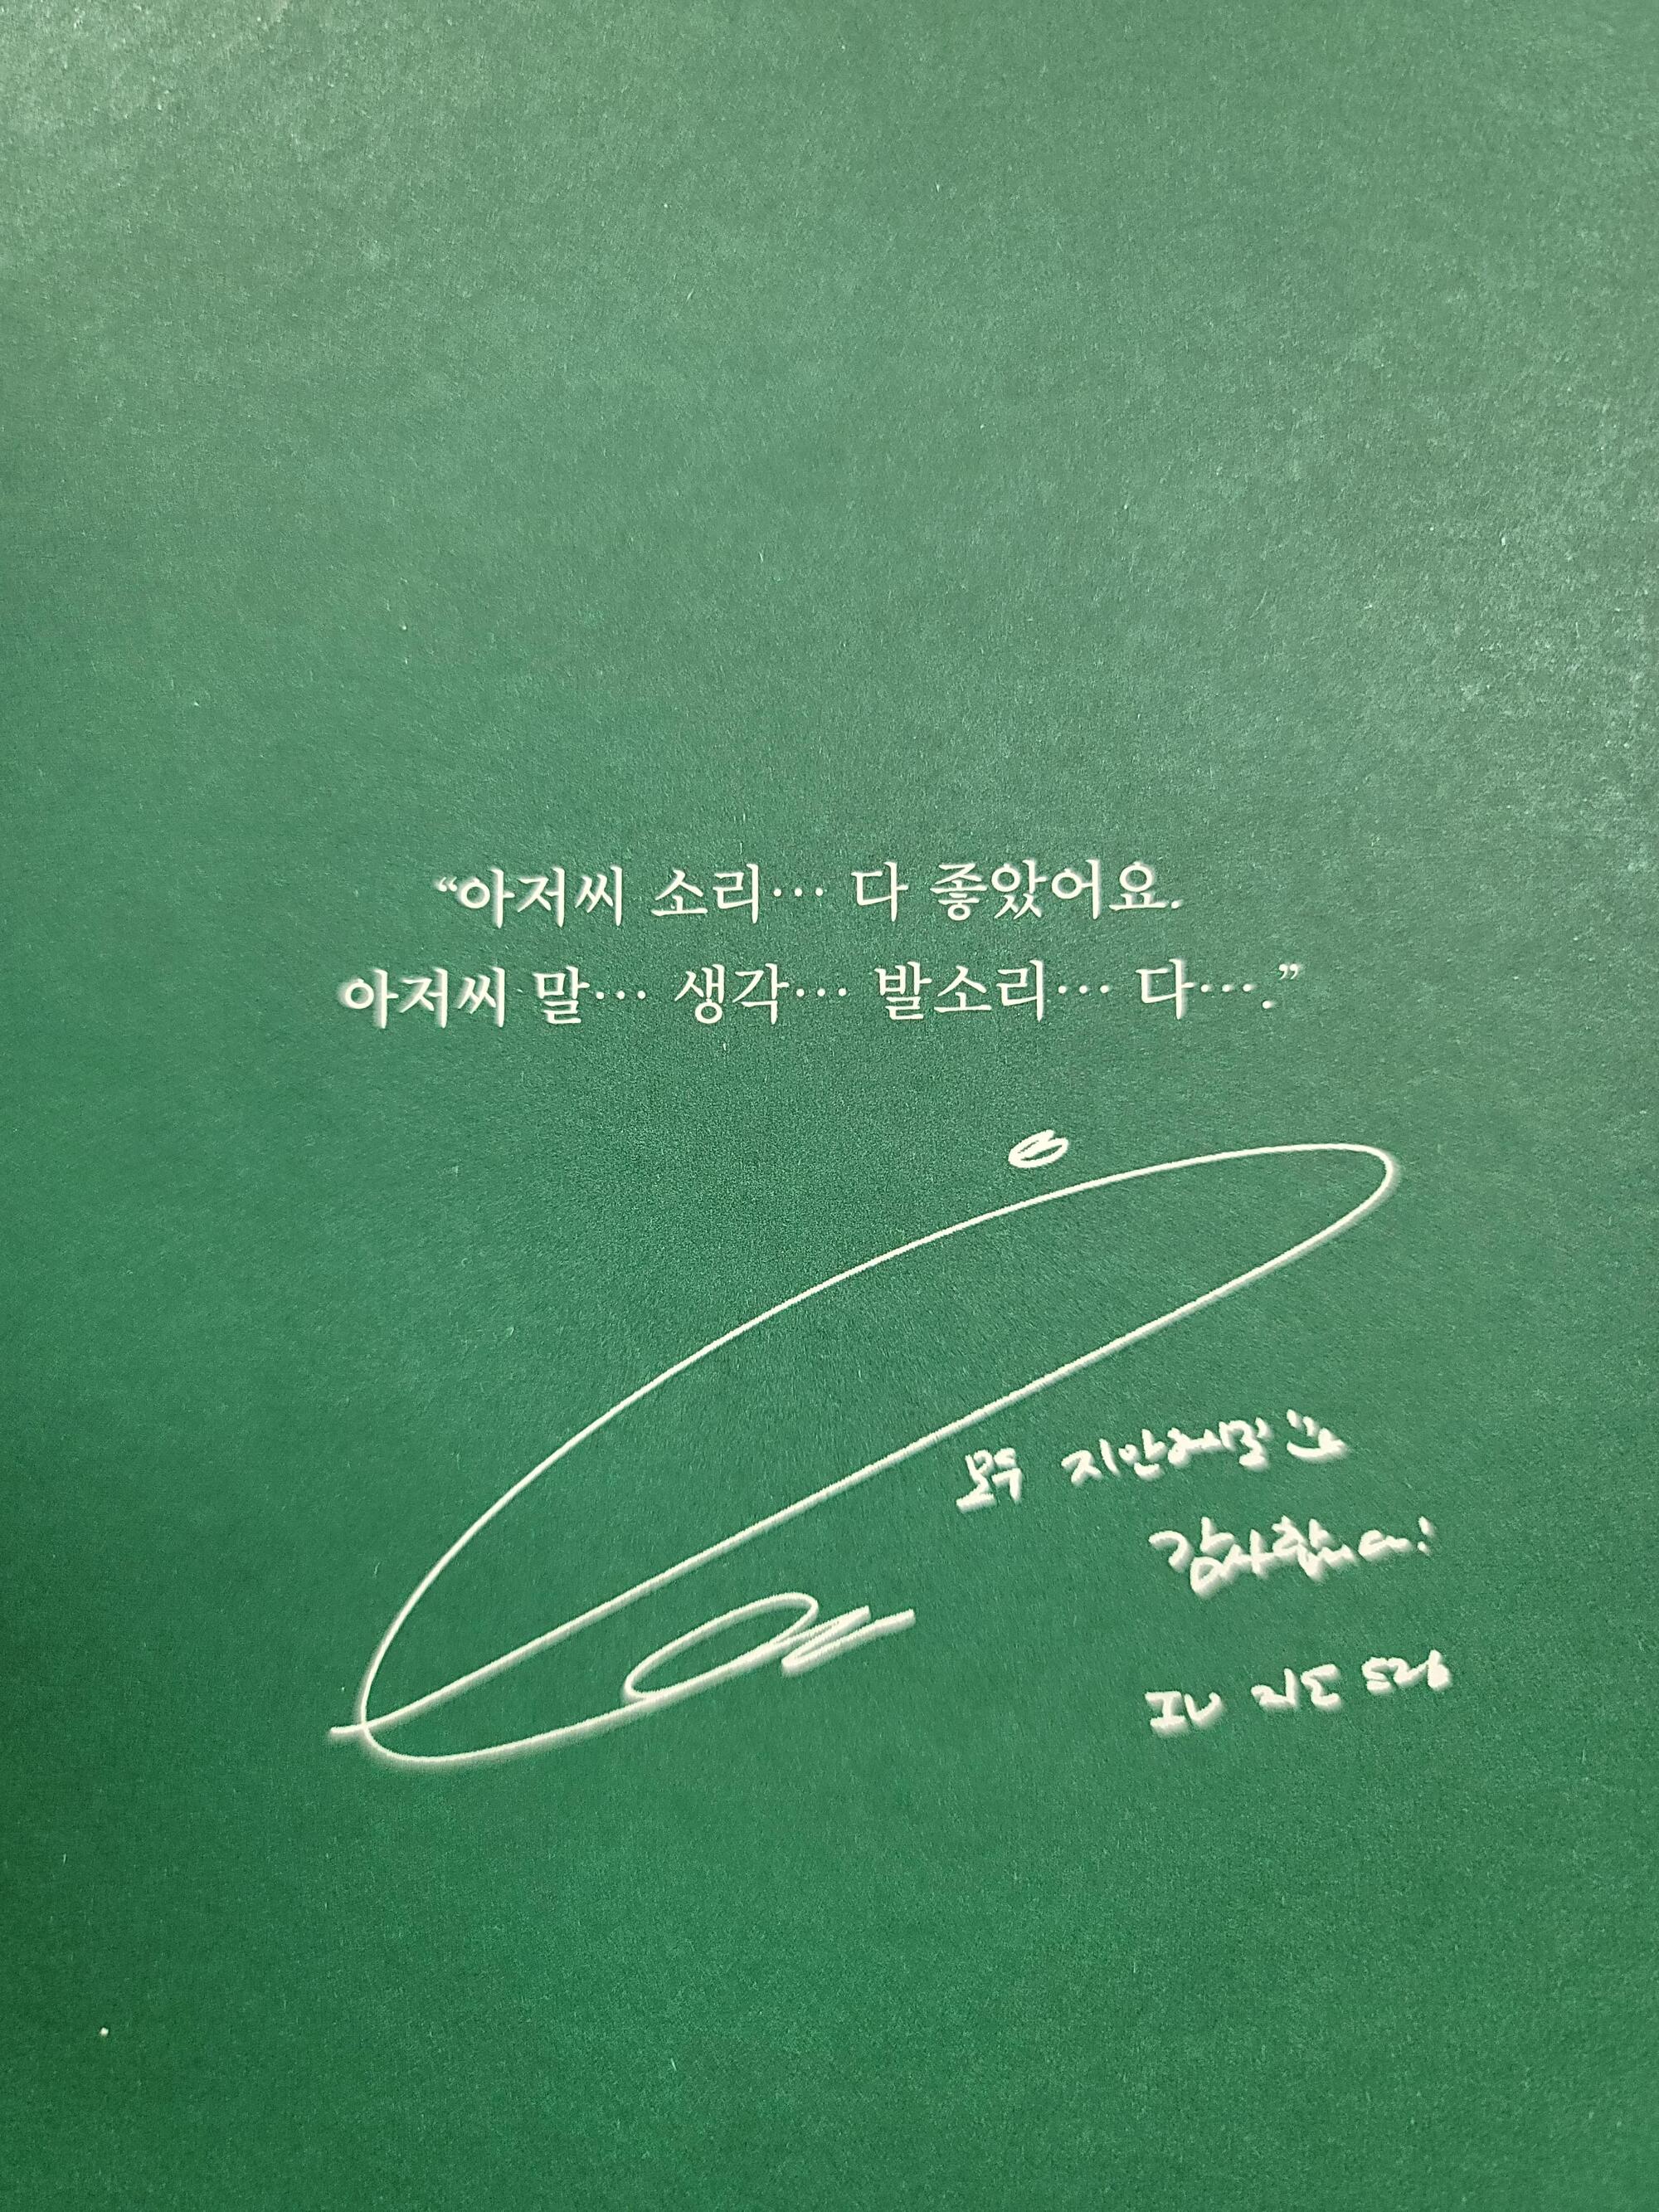 “아저씨 소리… 다 좋았어요.
아저씨 말… 생각… 발소리… 다….”
모두 지안하세요
감사합니다!
IU 지은 드림